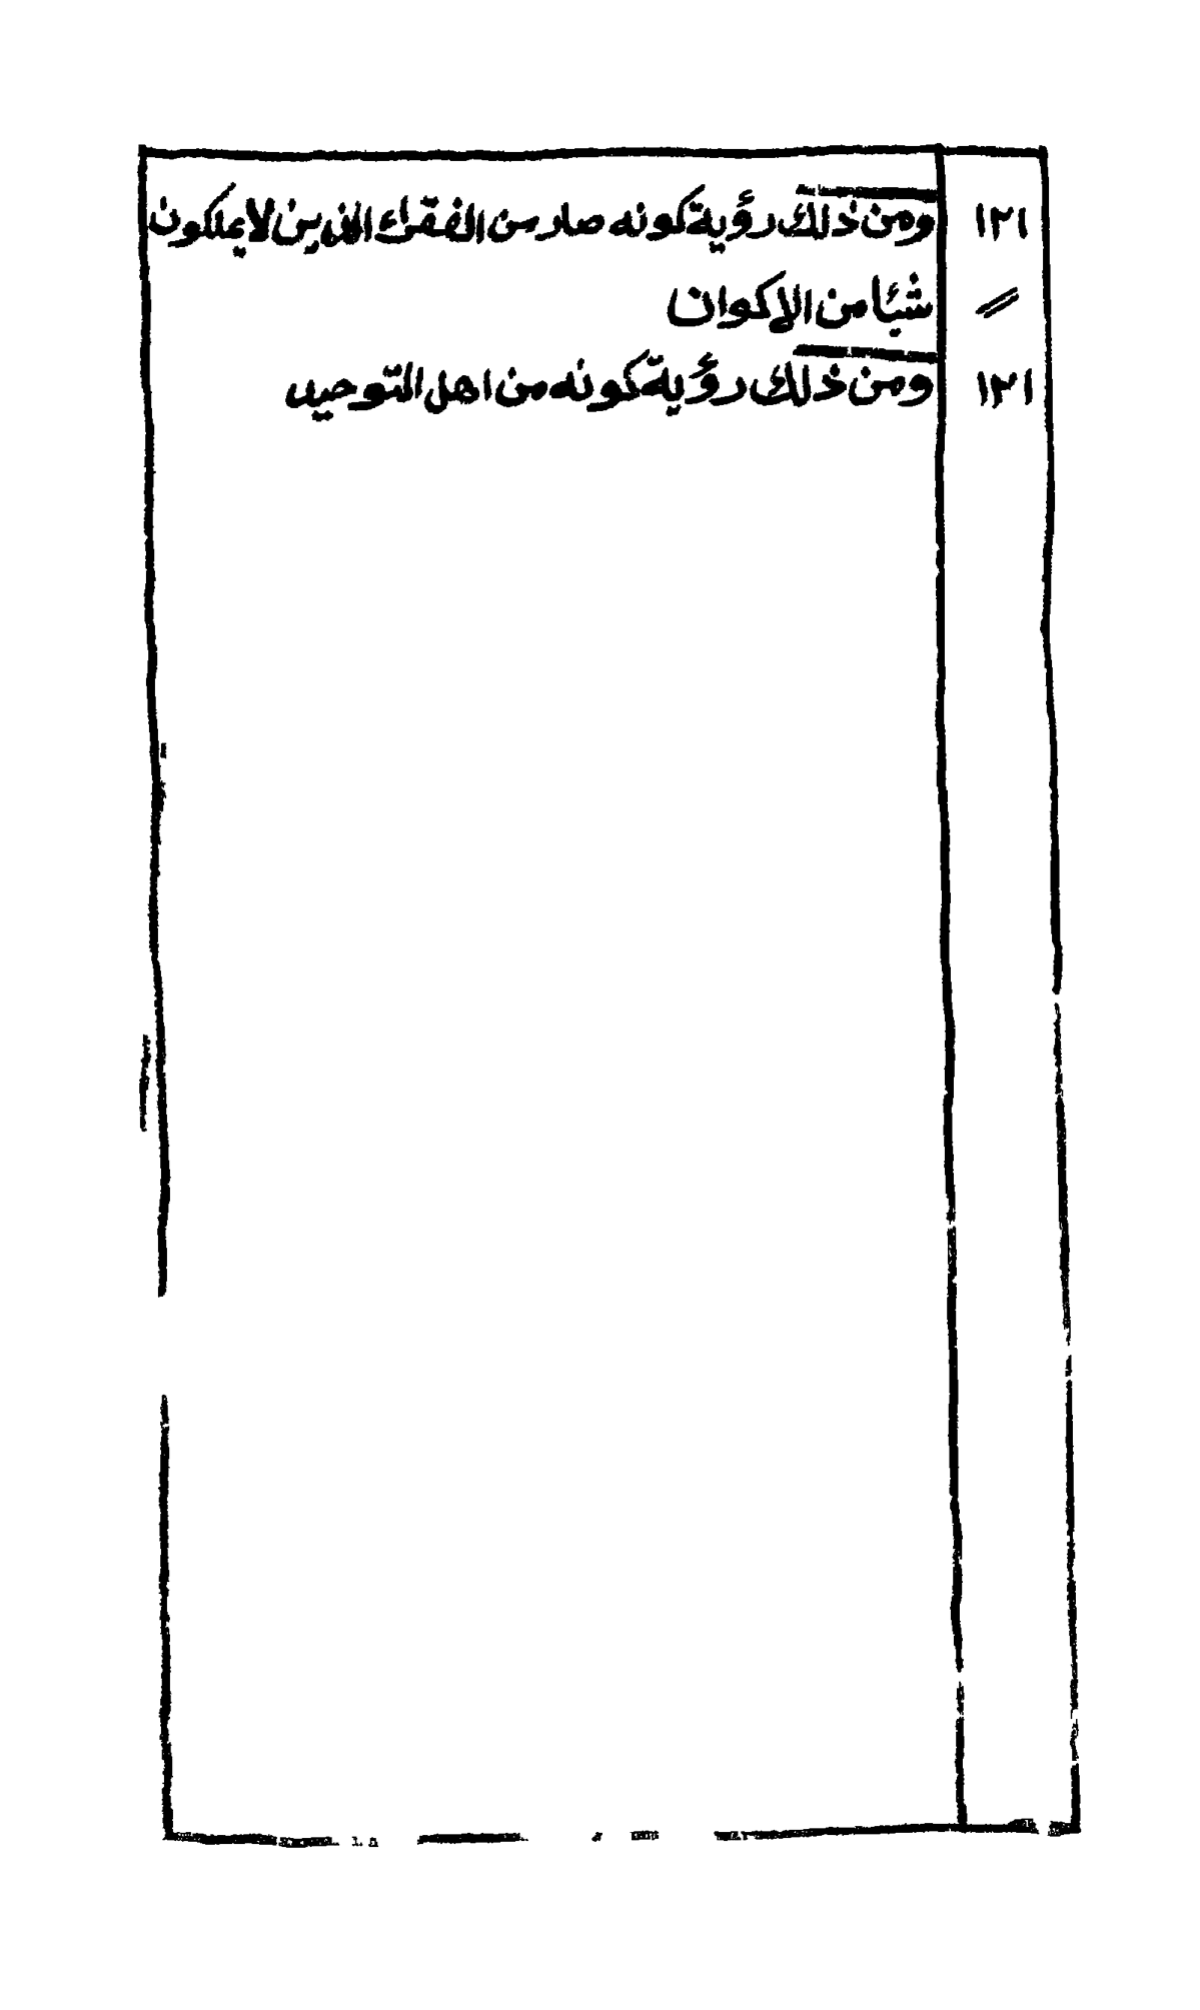 ١٢١ ومن ذلك رؤية كونه صار من الفقراء الذين لا يملكون
〃 شيئا من الاكوان
١٢١ ومن ذلك رؤية كونه من اهل التوحيد